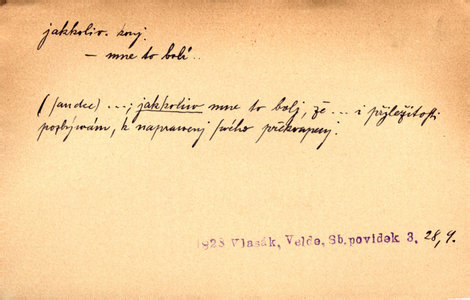 jakkoliv. konj.
— mne to bolí..
(Jandec) ...; jakkoliv mne to bolj, že ... i přjležitosti
pozbýwám, k naprawenj swého překwapenj.
1928 Vlasák, Velde, Sb.povidek 3, 28, 9.